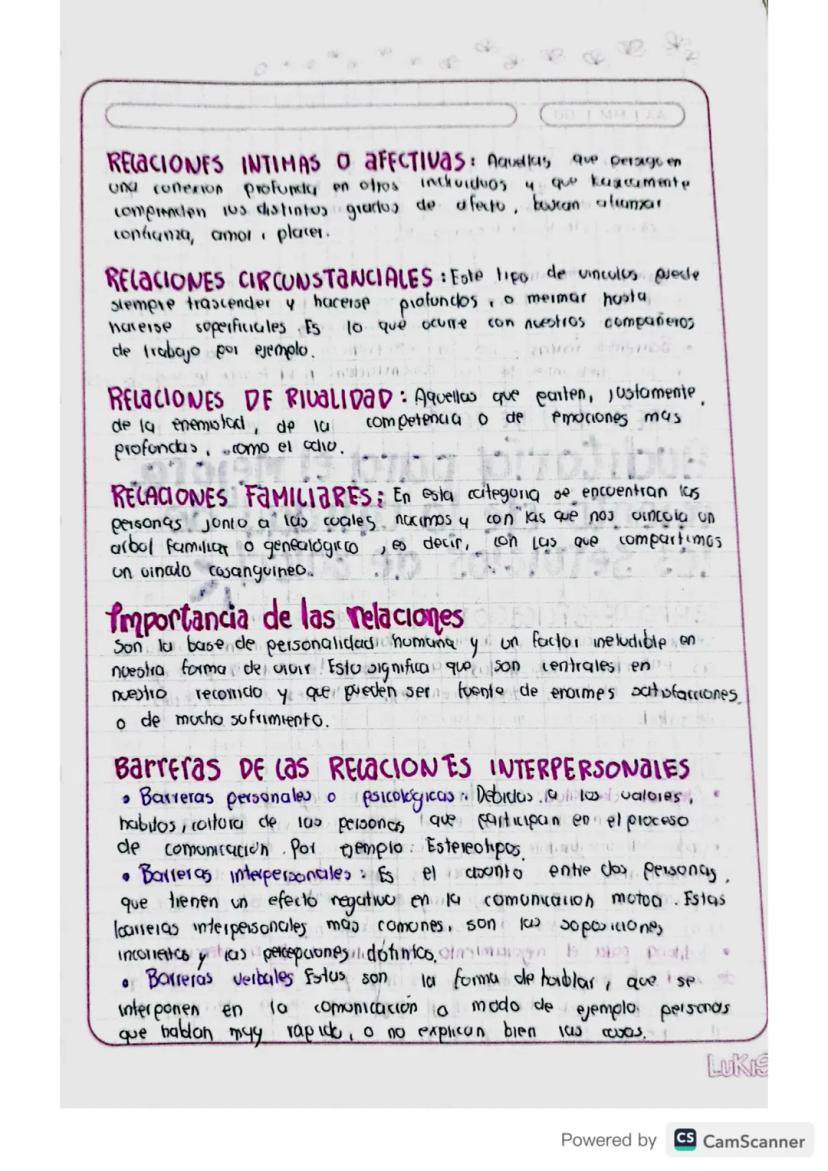 RELACIONES INTIMAS O AFECTIVAS: Aquellas que persiguen
una conexion profunda en otros individuos y que
comprenden los distintos grados de afecto, buscan afianzar
confianza, amor, placer.
RELACIONES CIRCUNSTANCIALES: Este tipo de vinculos puede
siempre trascender y hacerse profundos, o mermar hasta
hacerse superficiales. Es lo que ocurre con nuestros compañeros
de trabajo por ejemplo.
RELACIONES DE RIVALIDAD: Aquellas que parten, justamente,
de la enemistad, de la competencia o de emociones mas
profundas, como el odio.
RELACIONES FAMILIARES: En esta categoria se encuentran las
personas junto a las cuales nacimos y con las que nos vincula un
arbol familiar o genealógico, es decir, con las que compartimos
un vinculo cosanguineo.
Importancia de las relaciones
Son la base de personalidad humana y un factor ineludible en
nuestra forma de vivir. Esto significa que son centrales en
nuestro recorrido y que pueden ser fuente de enormes satisfacciones
o de mucho sufrimiento.
Barreras DE LAS RELACIONES INTERPERSONALES
• Barreras personales o psicológicas: Debidas a los valores,
habitos, cultura de las personas que participan en el proceso
de comunicación. Por ejemplo: Estereotipos.
• Barreras interpersonales: Es el asunto entre dos personas,
que tienen un efecto negativo en la comunicacion mutua. Estas
barreras interpersonales mas comunes, son las suposiciones
incorrectas y las percepciones distintas.
• Barreras verbales Estas son la forma de hablar, que se
interponen en la comunicación a modo de ejemplo personas
que hablan muy rapido, o no explican bien las cosas.
LUKIS
Powered by CS CamScanner